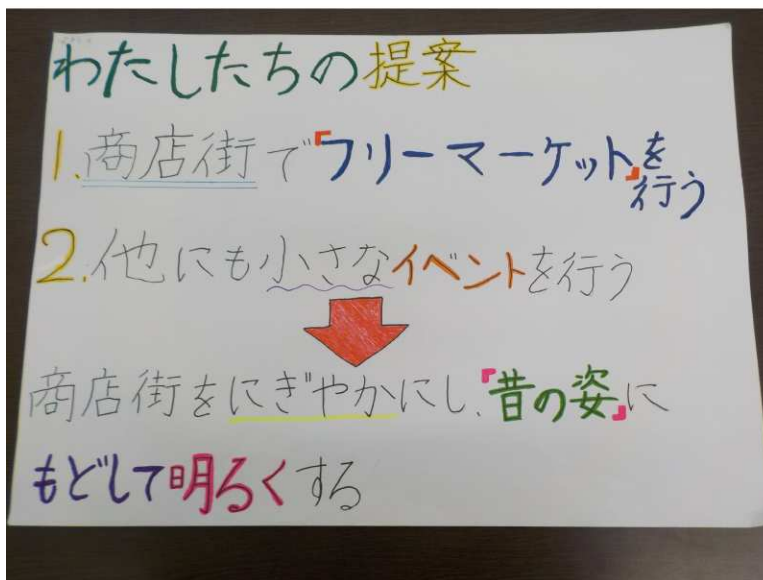 わたしたちの提案
1.商店街で『フリーマーケット』を
行う
2.他にも小さなイベントを行う
商店街をにぎやかにし、『昔の姿』に
もどして明るくする